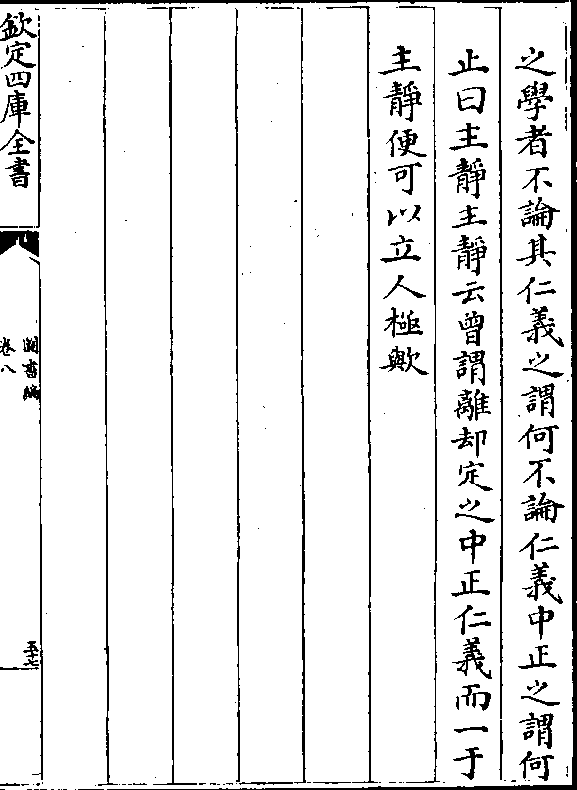 之學者不論其仁義之謂何不論仁義中正之謂何
止曰主靜主靜云曾謂離却定之中正仁義而一于
主靜便可以立人極歟
欽定四庫全書
圖書編
卷八
五十七